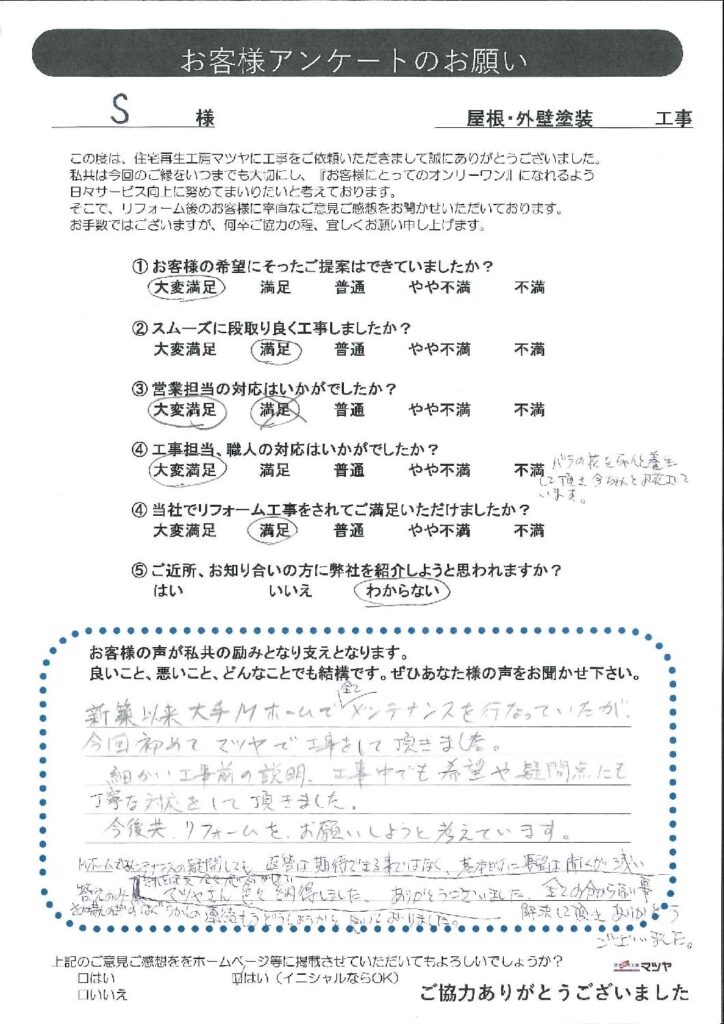 お客様アンケートのお願い
S 様 屋根・外壁塗装 工事
この度は、住宅再生工房マツヤに工事をご依頼いただきまして誠にありがとうございました。
私共は今回のご縁をいつまでも大切にし、『お客様にとってのオンリーワン』になれるよう
日々サービス向上に努めてまいりたいと考えております。
そこで、リフォーム後のお客様に率直なご意見ご感想をお聞かせいただいております。
お手数ではございますが、何卒ご協力の程、宜しくお願い申し上げます。
① お客様の希望にそったご提案はできていましたか？
大変満足 満足 普通 やや不満 不満
② スムーズに段取り良く工事しましたか？
大変満足 満足 普通 やや不満 不満
③ 営業担当の対応はいかがでしたか？
大変満足 満足 普通 やや不満 不満
④ 工事担当、職人の対応はいかがでしたか？
大変満足 満足 普通 やや不満 不満
バラの花をちゃんと養生
して頂き今ちゃんとお花立て
います。
④ 当社でリフォーム工事をされてご満足いただけましたか？
大変満足 満足 普通 やや不満 不満
⑤ ご近所、お知り合いの方に弊社を紹介しようと思われますか？
はい いいえ わからない
お客様の声が私共の励みとなり支えとなります。
良いこと、悪いこと、どんなことでも結構です。ぜひあなた様の声をお聞かせ下さい。
新築以来大手Mホームで全てメンテナンスを行なっていたが、
今回初めてマツヤで工事をして頂きました。
細かい工事前の説明、工事中でも希望や疑問点にも
丁寧な対応をして頂きました。
今後共、リフォームを、お願いしようと考えています。
Mホームではメンテナンスの質問しても、返答は期待できる事ではなく、基本的に
マツヤさん 色々と納得しました。ありがとうございました。全ての分からない事
解決して頂きありがとう
ございました。
上記のご意見ご感想ををホームページ等に掲載させていただいてもよろしいでしょうか？
□はい ☑はい（イニシャルならOK）
□いいえ
マツヤ
ご協力ありがとうございました